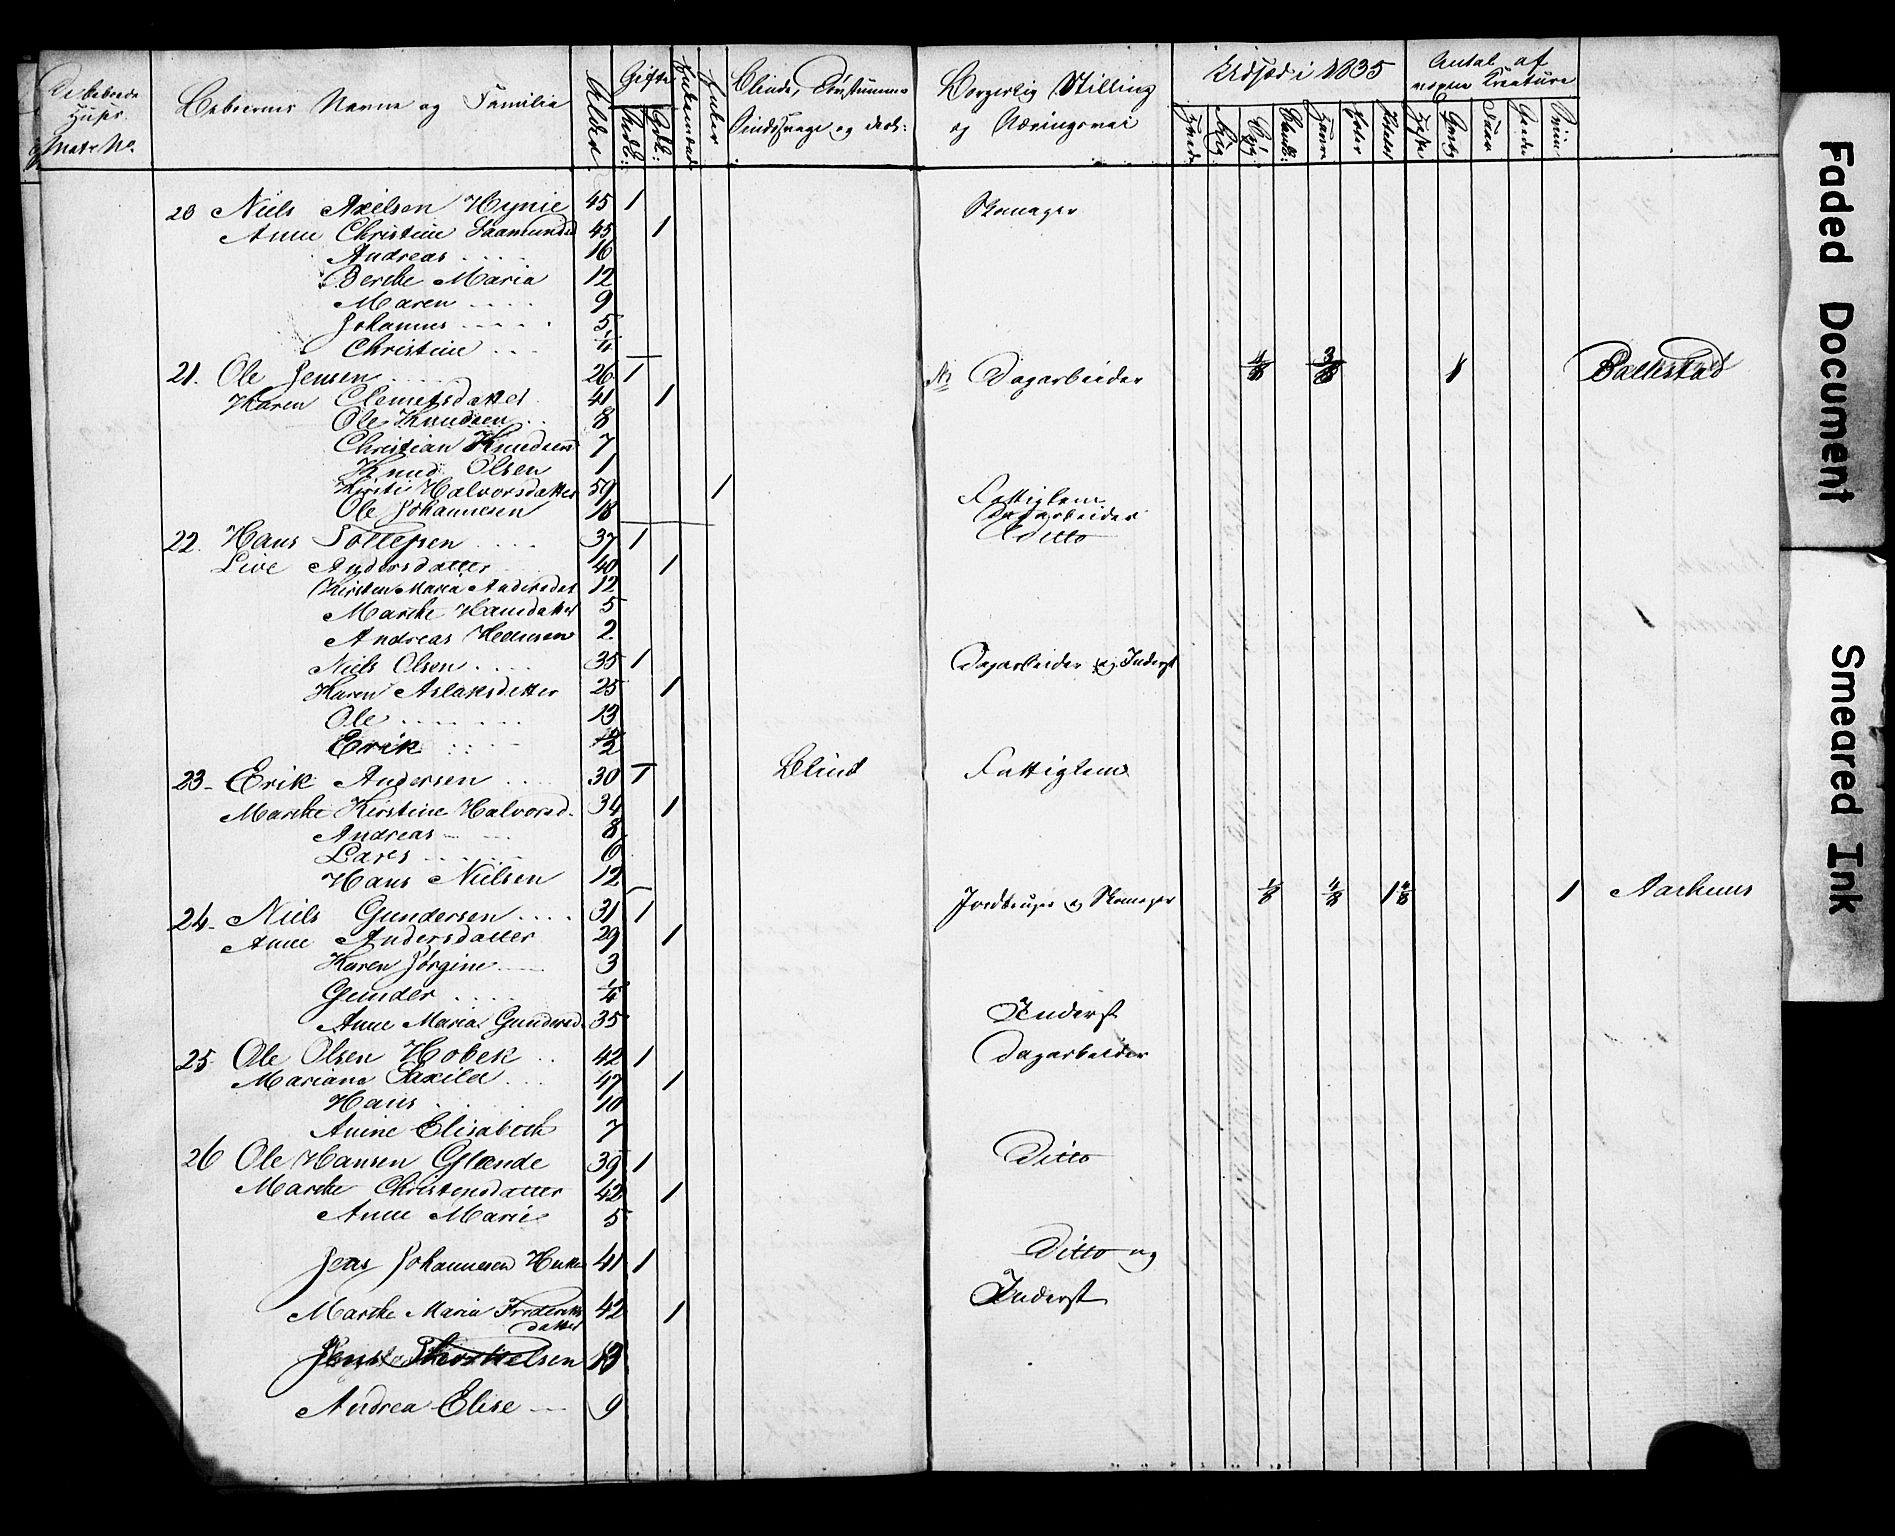 De beboede Huses Matr. No.
Beboernes Navne og Familie
Alder
Gifte
Enker
Blinde, Døvstumme
Sindssvage og desl:
Borgerlig Stilling
og Næringsvei
Udsæd i 1835
Hvede Rug Byg Bland: Havre Erter Poteter
Antal af
nogen Kreature
Heste Qvæg Faar Geeder Sviin
20 Niels Axelsen Hynie 45 1 Skomager
Anne Christine Saamundsd 45 1
Andreas .... 16
Berthe Maria 12
Maren .... 9
Johannes ..... 5
Christine ... 1/4
21. Ole Jensen ..... 26 1 Dagarbeider 1/8 3/8 1 Balkestad
Karen Clemetsdatter. 41 1
Ole Knudsen .. 8
Christian Knudsen 7
Knud Olsen 1
Kirsti Halvorsdatter 59 1 Fattiglem
Ole Johannesen 18 Dagarbeider
22. Hans Tollefsen .... 37 1 Ditto
Live Andersdatter 40 1
Kirsten Maria Andersdat 12
Marthe Hansdatter 5
Andreas Hansen 2
Niels Olsen .... 35 1 Dagarbeider og Inderst
Karen Aslaksdatter 25 1
Ole ....... 13
Erik .... 1/2
23- Erik Andersen .... 30 1 Blind Fattiglem
Marthe Kirstine Halvorsd. 34 1
Andreas 8
Lares ..... 6
Hans Nielsen 12
24- Niels Gundersen .... 31 1 Jordbruger og Skomager 1/8 4/8 1 4/8 1 Aarhuus
Anne Andersdatter 29 1
Karen Jørgine 3
Gunder .... 1/4
Anne Maria Gundersd. 35 Inderst
25- Ole Olsen Hobek .. 42 1 Dagarbeider
Mariane Saxild ... 47 1
Hans .... 10
Anine Elisabeth 7
26 Ole Hansen Glænde 39 1 Ditto
Marthe Christensdatter 42 1
Anne Marie 5
Jens Johannesen 41 1 Ditto og
Inderst
Marthe Maria Frederiks
datter 42 1
Jens Therkelsen 13
Andrea Elise — 9
Faded Document
Smeared Ink